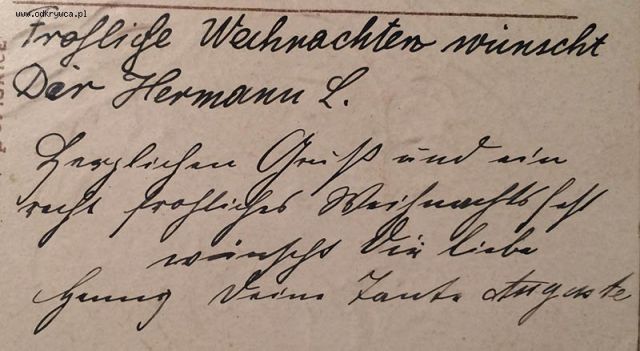 www.odkrywca.pl
Fröhliche Weihnachten wünscht
Dir Hermann L.
Herzlichen Gruß und ein
recht frohliches Weihnachtsfest
wünscht Dir liebe
Henny Deine Tante Auguste